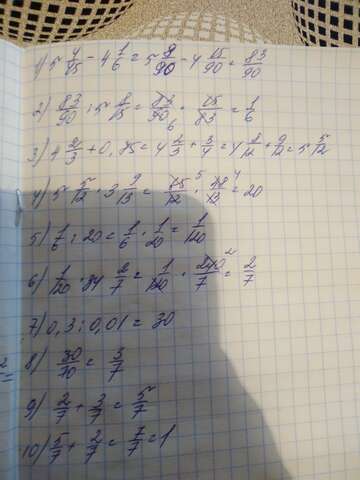 1) 5 4/45 - 4 1/6 = 5 9/90 - 4 15/90 = 83/90
2) 83/90 : 5 8/15 = 83/90 · 15/83 = 1/6
3) 4 2/3 + 0,75 = 4 2/3 + 3/4 = 4 8/12 + 9/12 = 5 5/12
4) 5 5/12 · 3 9/13 = 65/12 · 48/13 = 20
5) 1/6 : 20 = 1/6 · 1/20 = 1/120
6) 1/120 · 34 2/7 = 1/120 · 240/7 = 2/7
7) 0,3 : 0,01 = 30
8) 30/70 = 3/7
9) 2/7 + 3/7 = 5/7
10) 5/7 + 2/7 = 7/7 = 1